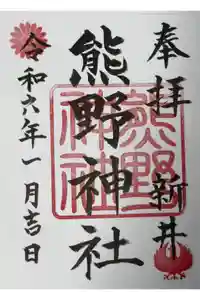 奉拝 新井
熊野神社
令和六年一月吉日
熊野神社